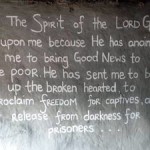 The Spirit of the LORD G
upon me because He has anoin
me to bring Good News to
he poor. He has sent me to b
up the broken hearted, to
roclaim freedom for captives, a
release from darkness for
prisoners ....